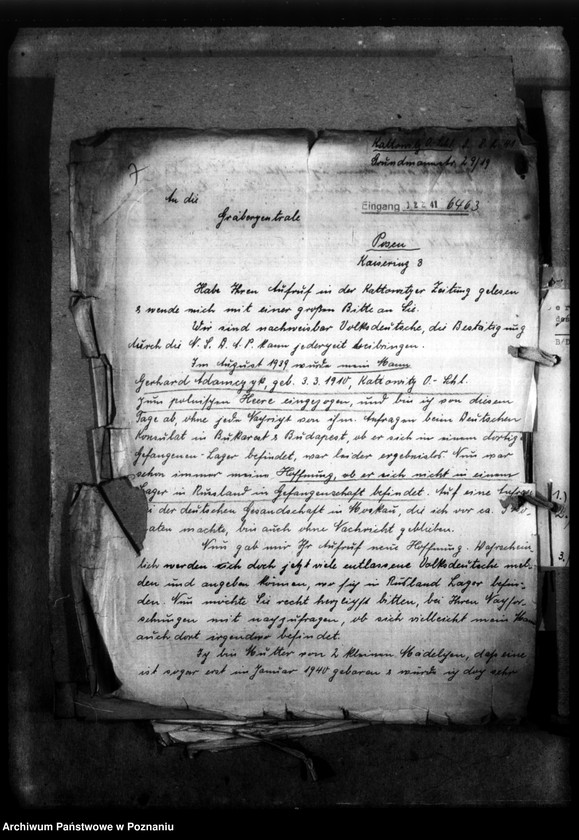 7
Kattowitz O.-Schl.
Grundmannstr. 29/19
An die
Gräberzentrale
Eingang 12. 2. 41 6463
Posen
Kaiserring 3
Habe Ihren Aufruf in der Kattowitzer Zeitung gelesen
& wende mich mit einer großen Bitte an Sie.
Wir sind nachweisbar Volksdeutsche, die Bestätigung
durch die N.S.D.A.P. kann jederzeit beibringen.
Im August 1939 wurde mein Mann
Gerhard geb. 3.3.1910, Kattowitz O.-Schl.
zum polnischen Heere eingezogen, und bin ich von diesem
Tage ab, ohne jede Nachricht von ihm. Anfragen beim Deutschen
Konsulat in Bukarest & Budapest, ob er sich in einem dortig.
Gefangenen-Lager befindet, war leider ergebnislos. Nun war
schon immer meine Hoffnung, ob er sich nicht in einem
Lager in Russland in Gefangenschaft befindet. Auf eine
der deutschen Gesandschaft in Moskau, die ich vor ca.
naten machte, bin auch ohne Nachricht geblieben.
Nun gab mir Ihr Aufruf neue Hoffnung. Wahrschein
lich werden sich doch jetzt viele entlassene Volksdeutsche mel-
den und angeben können, wo sich in Rußland Lager befin-
den. Nun möchte Sie recht herzlichst bitten, bei Ihren Nachfor-
schungen mit nachzufragen, ob sich vielleicht mein Mann
auch dort irgendwo befindet.
Ich bin Mutter von 2 kleinen Mädelchen, dass eine
ist sogar erst im Januar 1940 geboren & würde ich doch sehr
Archiwum Państwowe w Poznaniu